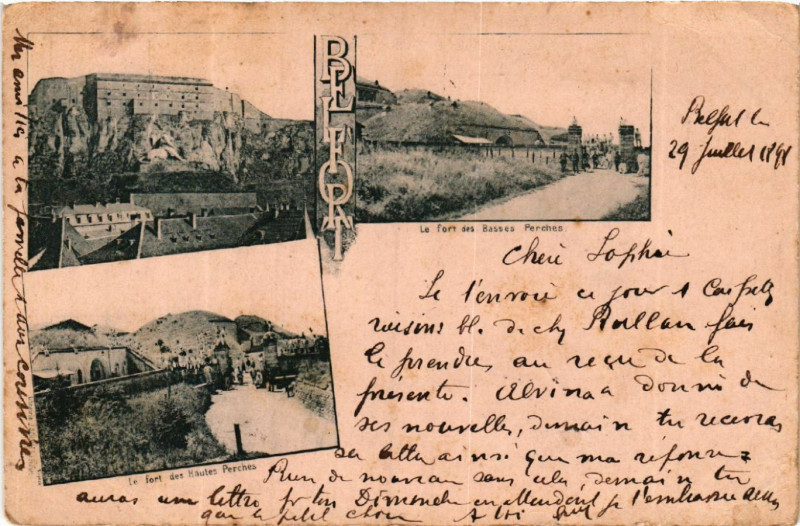 BELFORT
Le fort des Basses Perches
Le fort des Hautes Perches
Belfort le
29 Juillet 1898
Chère Sophie
Je t'envoie ce jour 1
raisins bl. de chz Rollan fais
le prendre au reçu de la
présente. Alvina a donné de
ses nouvelles, demain tu recevras
sa lettre ainsi que ma réponse
Rien de nouveau sans cela, demain tu
auras une lettre pr ton Dimanche en attendant je t'embrasse
que le petit chou A toi
Mes amitiés à la famille & aux cousines